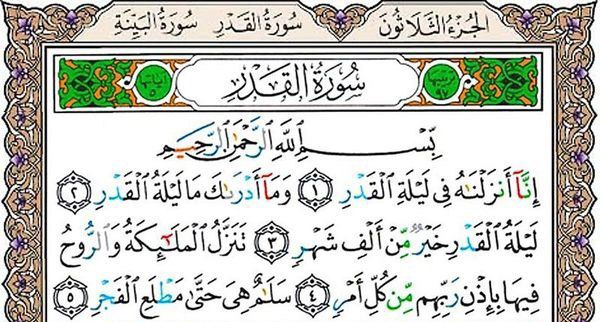 الجُزءُ الثَّلَاثُونَ سُورَةُ القَدْرِ سُورَةُ البَيِّنَةِ
سُورَةُ القَدْرِ
بِسْمِ اللَّهِ الرَّحْمَٰنِ الرَّحِيمِ
إِنَّآ أَنزَلْنَٰهُ فِى لَيْلَةِ الْقَدْرِ ۝١ وَمَآ أَدْرَىٰكَ مَا لَيْلَةُ الْقَدْرِ ۝٢
لَيْلَةُ الْقَدْرِ خَيْرٌ مِّنْ أَلْفِ شَهْرٍ ۝٣ تَنَزَّلُ الْمَلَٰٓئِكَةُ وَالرُّوحُ
فِيهَا بِإِذْنِ رَبِّهِم مِّن كُلِّ أَمْرٍ ۝٤ سَلَٰمٌ هِىَ حَتَّىٰ مَطْلَعِ الْفَجْرِ ۝٥